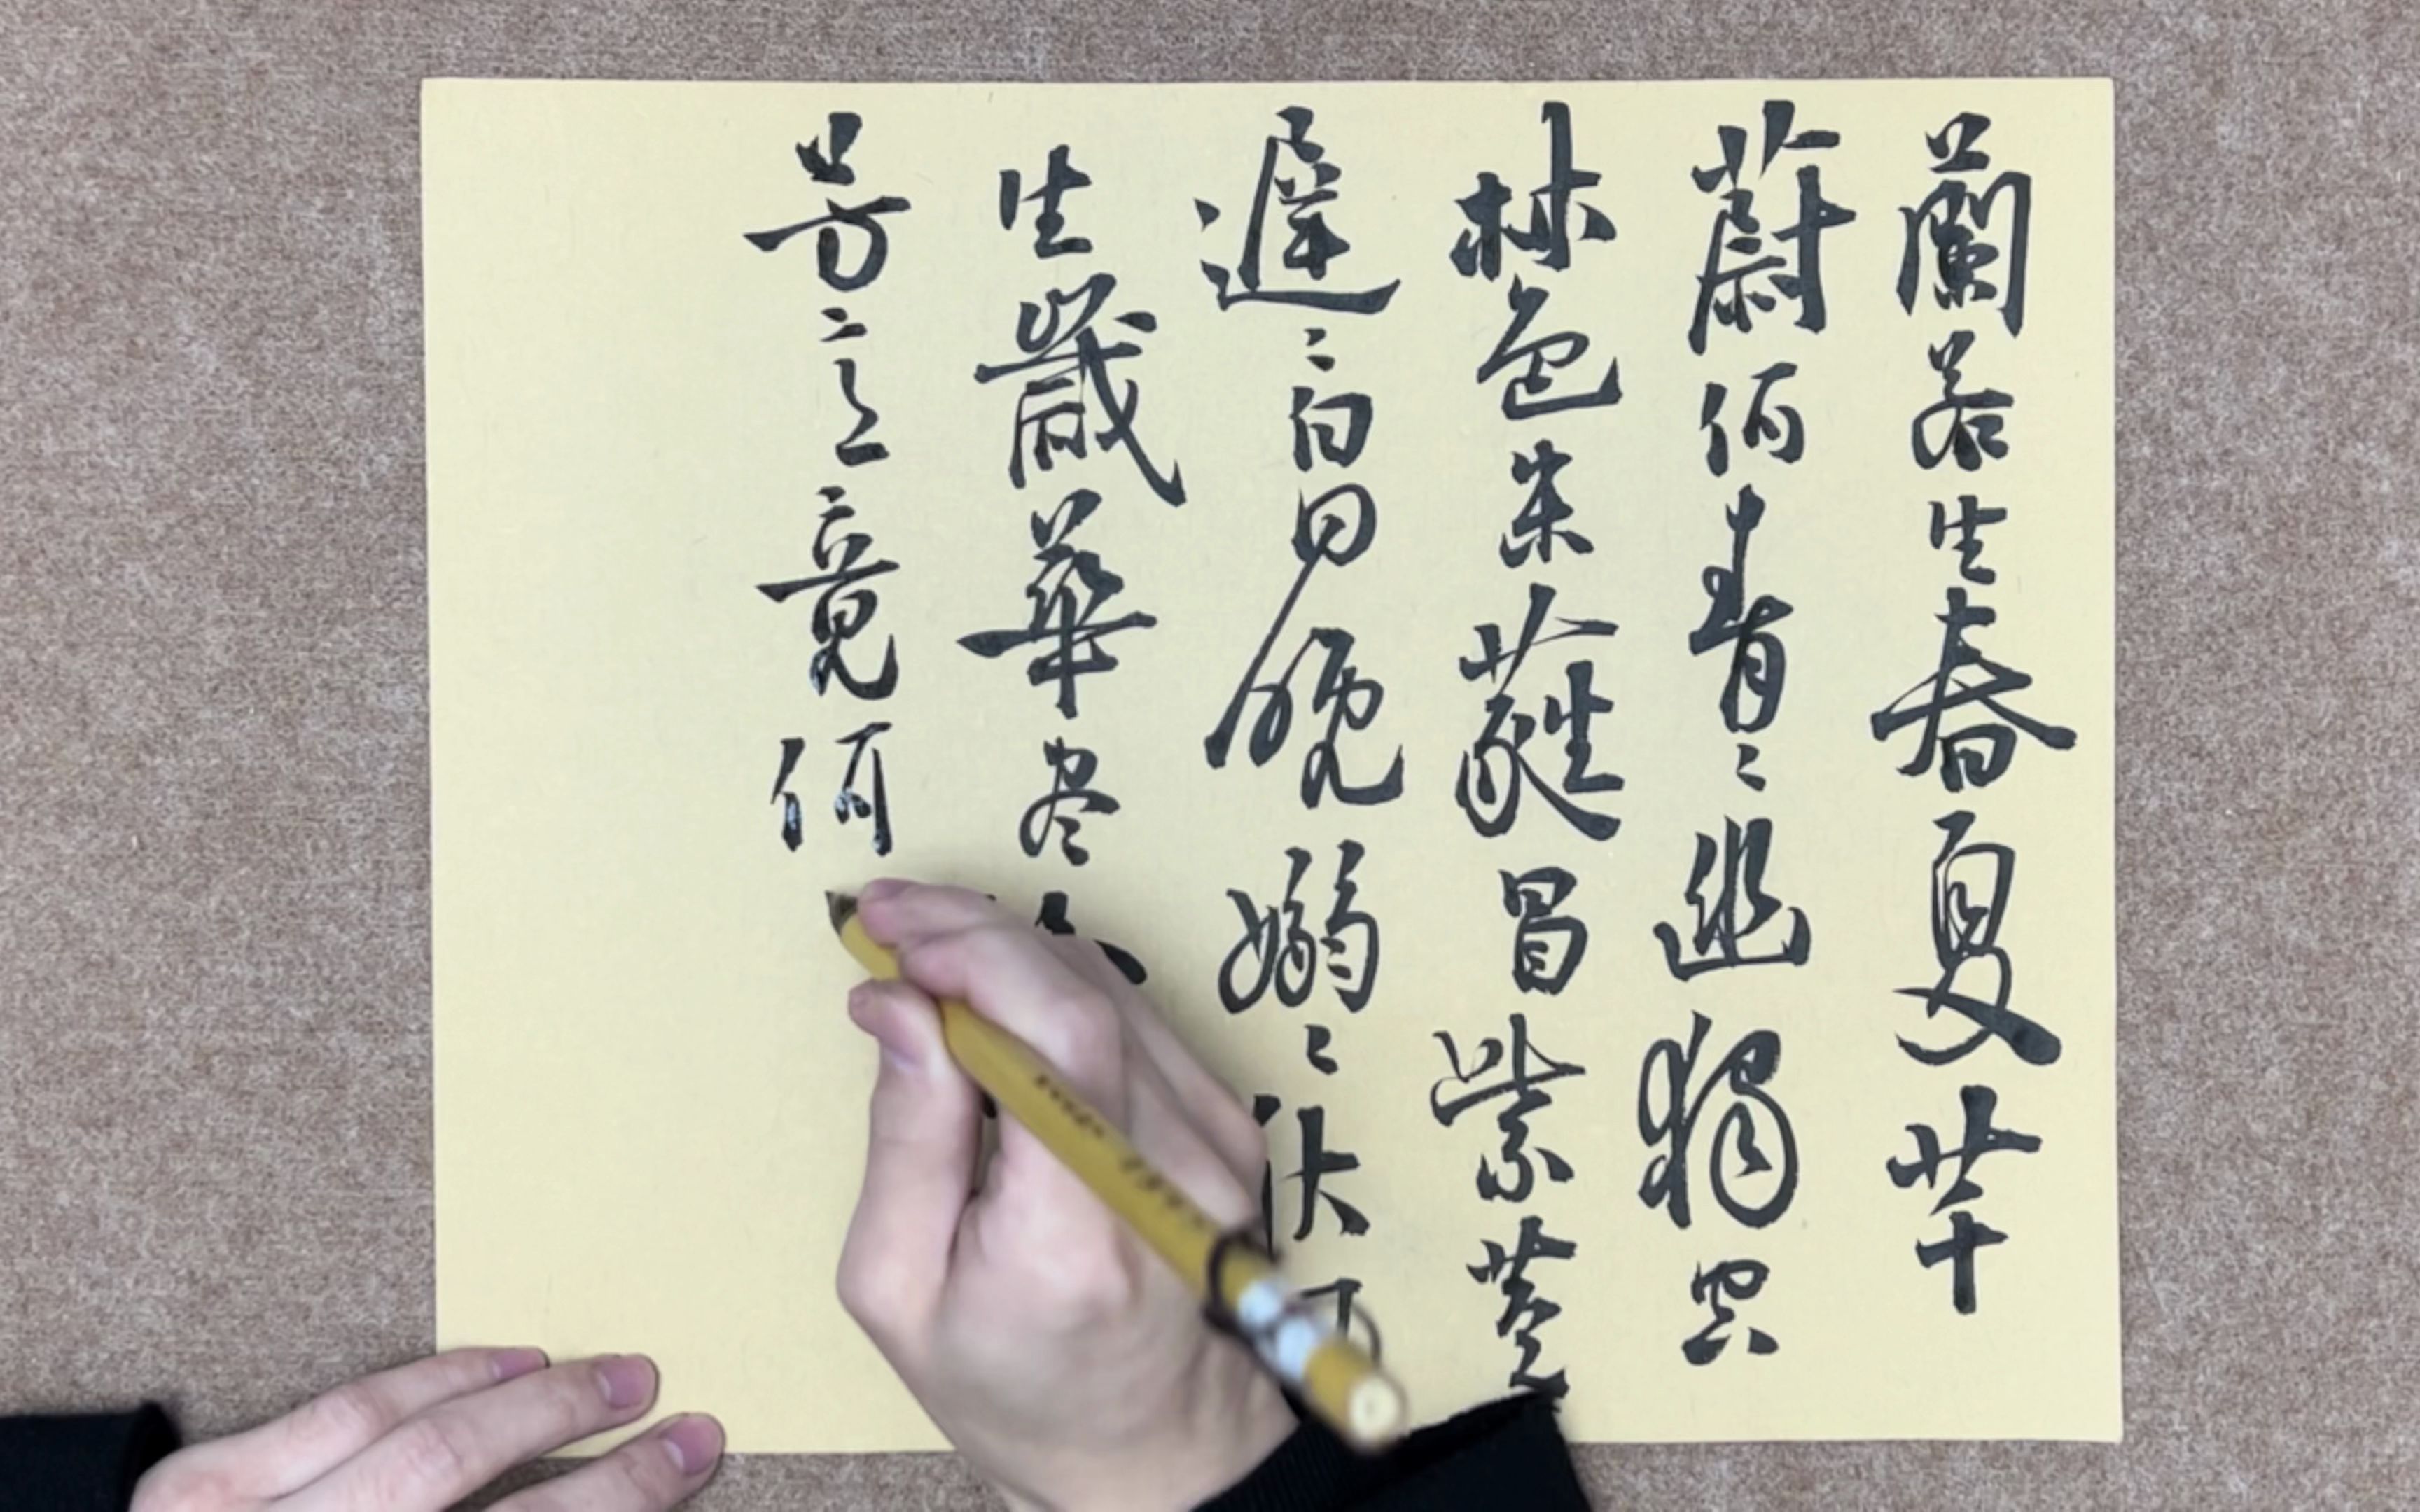 蘭若生春夏芊
蔚何青々幽獨空
林色朱蕤冒紫莖
遲々白日晚嫋々秋
生歲華尽
芳意竟何